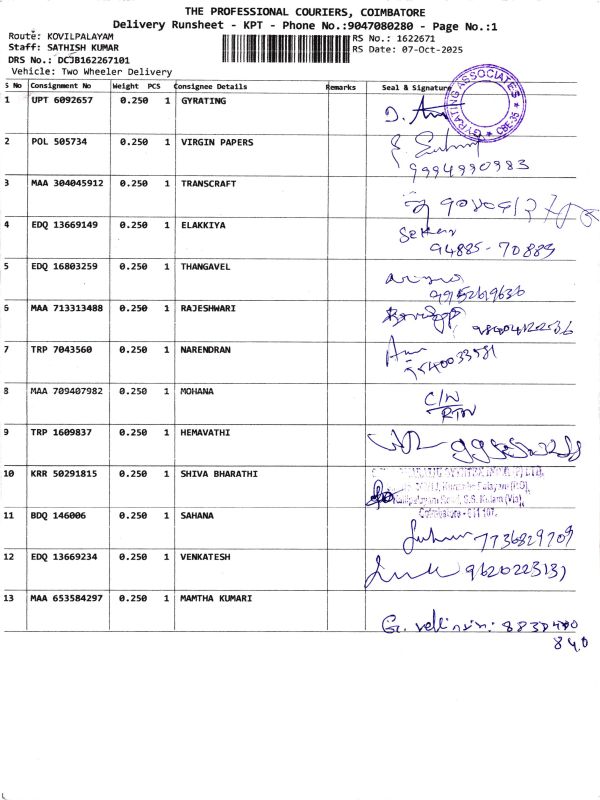 THE PROFESSIONAL COURIERS, COIMBATORE
Delivery Runsheet - KPT - Phone No.:9047080280 - Page No.:1
Route: KOVILPALAYAM
RS No.: 1622671
Staff: SATHISH KUMAR
RS Date: 07-Oct-2025
DRS No.: DCJB162267101
Vehicle: Two Wheeler Delivery
S No Consignment No Weight PCS Consignee Details Remarks Seal & Signature
1 UPT 6092657 0.250 1 GYRATING
GYRATING ASSOCIATES * CBE-35 *
2 POL 505734 0.250 1 VIRGIN PAPERS
9994990983
3 MAA 304045912 0.250 1 TRANSCRAFT
4 EDQ 13669149 0.250 1 ELAKKIYA
Sekar
94885-70889
5 EDQ 16803259 0.250 1 THANGAVEL
6 MAA 713313488 0.250 1 RAJESHWARI
7 TRP 7043560 0.250 1 NARENDRAN
8 MAA 709407982 0.250 1 MOHANA
C/N
RTN
9 TRP 1609837 0.250 1 HEMAVATHI
10 KRR 50291815 0.250 1 SHIVA BHARATHI
Coimbatore - 641 107.
11 BDQ 146006 0.250 1 SAHANA
7736829709
12 EDQ 13669234 0.250 1 VENKATESH
9620223131
13 MAA 653584297 0.250 1 MAMTHA KUMARI
840